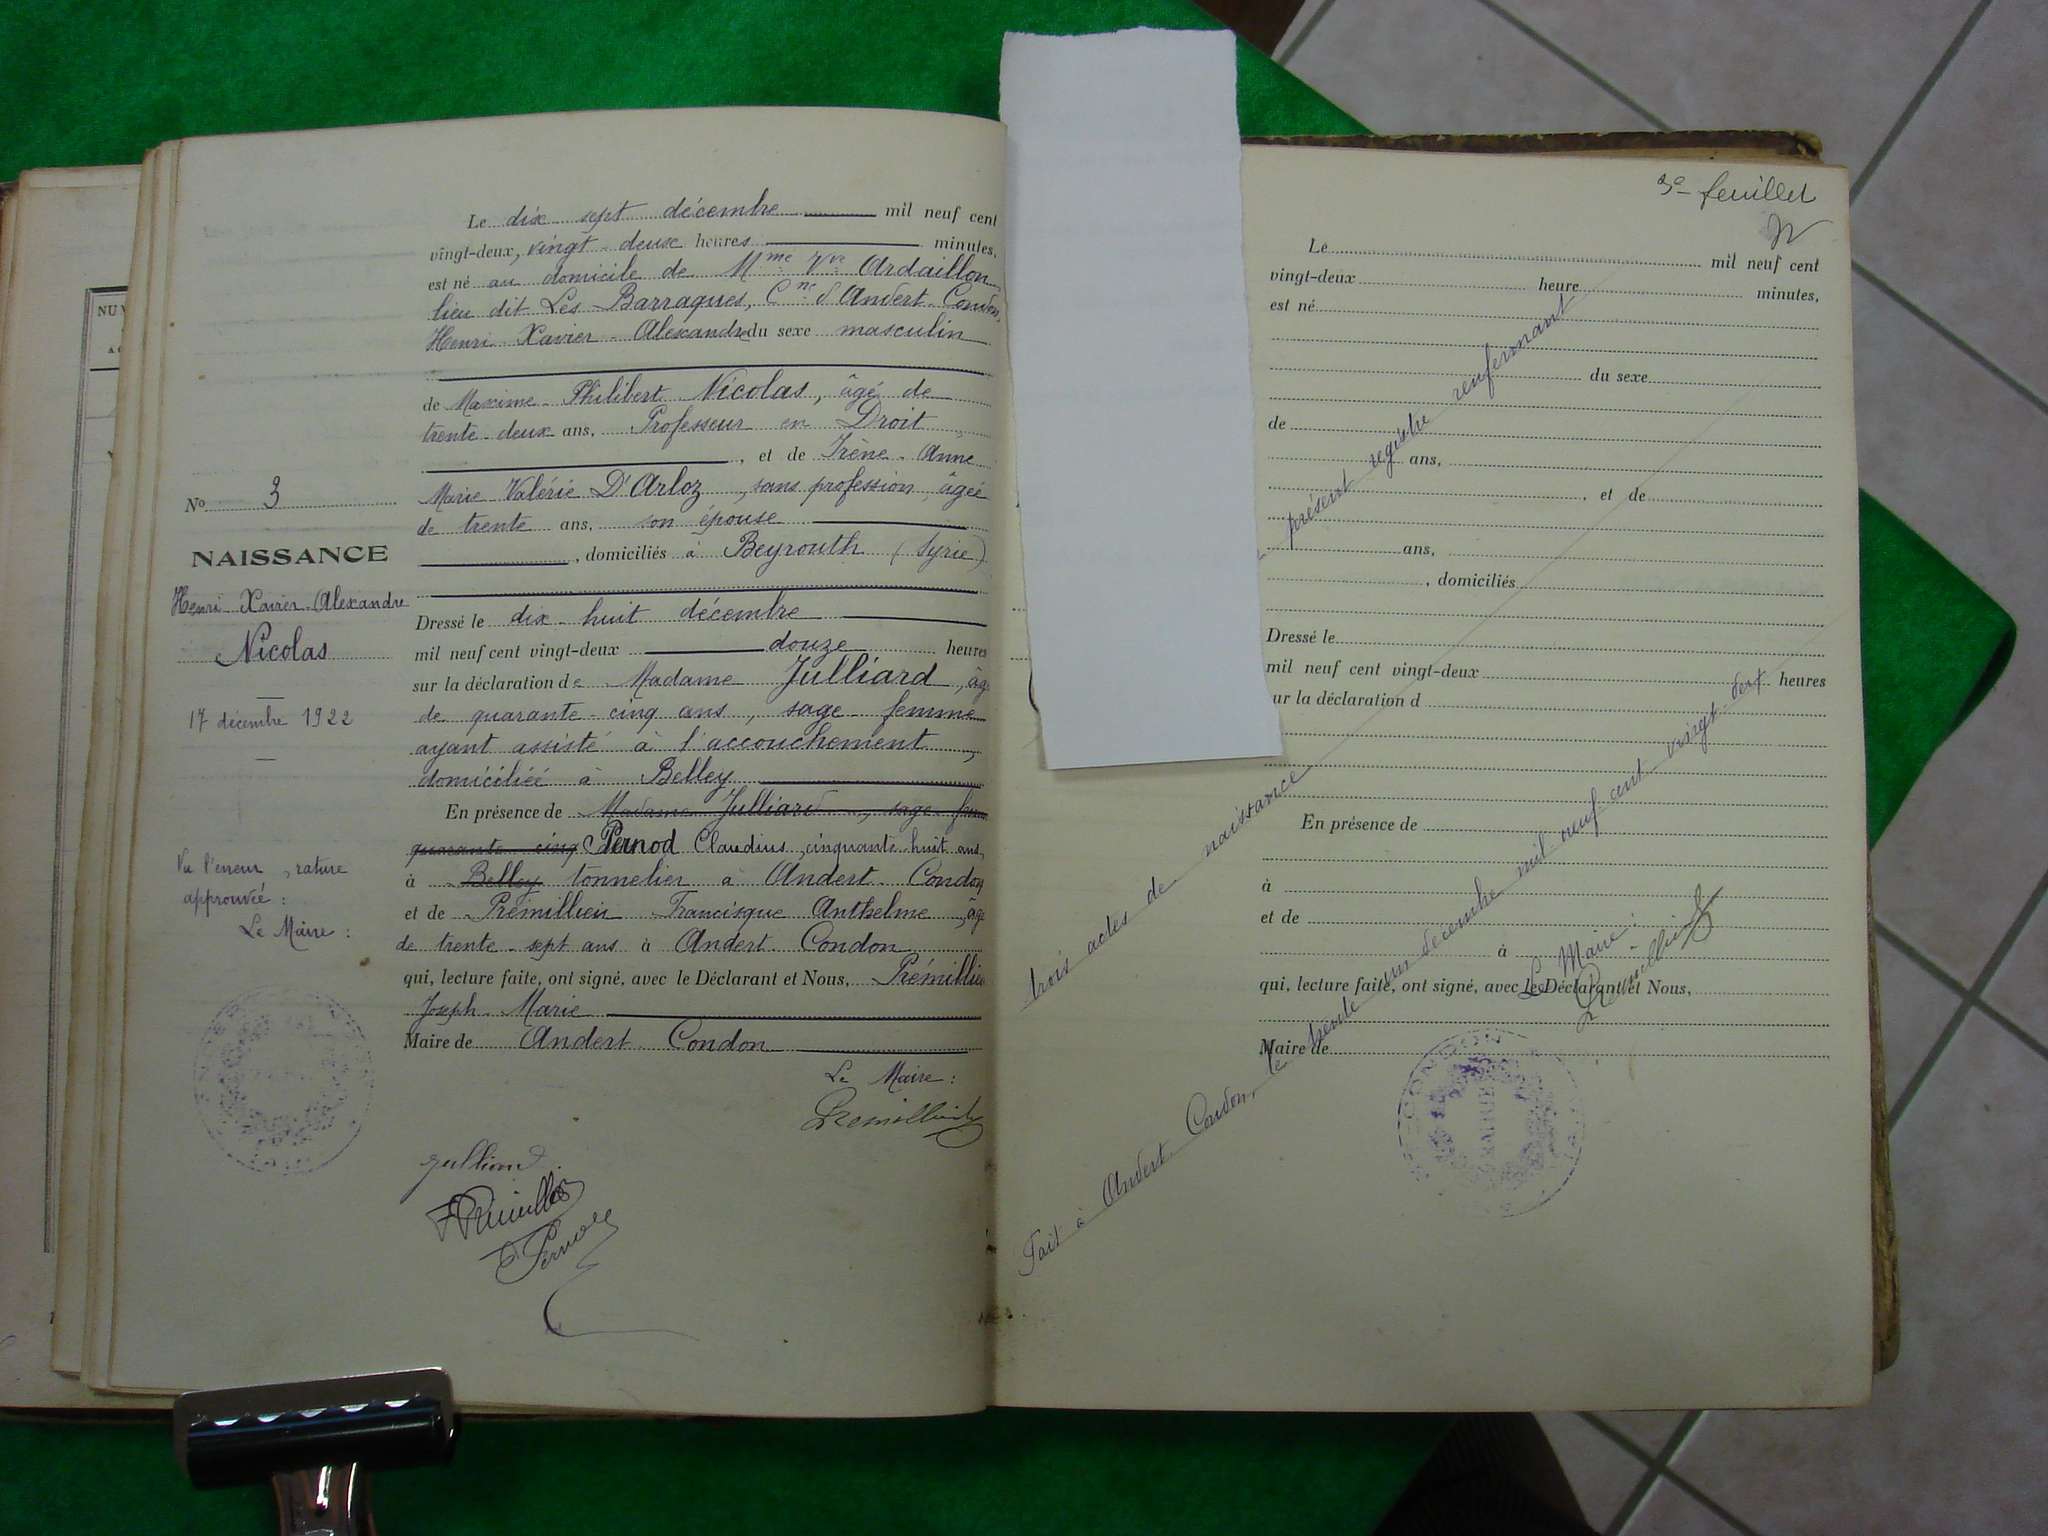 Le dix sept décembre mil neuf cent
vingt-deux, vingt-deux heures minutes,
est né au domicile de Mme Vve Ardaillon
lieu dit Les Barraques, Cne d'Andert-Condon,
Henri-Xavier-Alexandre du sexe masculin
de Maxime-Philibert Nicolas, âgé de
trente-deux ans, Professeur en Droit
, et de Irène-Anne
Marie Valérie D'Arloz, sans profession, âgée
de trente ans, son épouse
, domiciliés à Beyrouth (Syrie)
Dressé le dix-huit décembre
mil neuf cent vingt-deux douze heures
sur la déclaration de Madame Julliard, âg
de quarante-cinq ans, sage-femme
ayant assisté à l'accouchement,
domiciliée à Belley
En présence de Madame Julliard, sage fem
quarante-cinq Pernod Claudius, cinquante-huit ans,
à Belley tonnelier à Andert-Condon
et de Prémillieu Francisque Anthelme, âgé
de trente-sept ans à Andert-Condon
qui, lecture faite, ont signé, avec le Déclarant et Nous, Prémillieu
Joseph-Marie
Maire de Andert-Condon
Le Maire :
Premillieu
Julliard
F Prémillieu
C Pernod
No 3
NAISSANCE
Henri-Xavier-Alexandre
Nicolas
17 décembre 1922
Vu l'erreur, rature
approuvée :
Le Maire :
NU
3e feuillet
Le mil neuf cent
vingt-deux heure minutes,
est né
du sexe
de
ans,
, et de
ans,
, domiciliés
Dressé le
mil neuf cent vingt-deux heures
ur la déclaration d
En présence de
à
et de
à
qui, lecture faite, ont signé, avec le Déclarant et Nous,
Maire de
présent registre renfermant
trois actes de naissance
Fait à Andert-Condon, le trente-un décembre mil neuf cent vingt-deux
Le Maire :
Premillieu
CONDON
MAIRIE